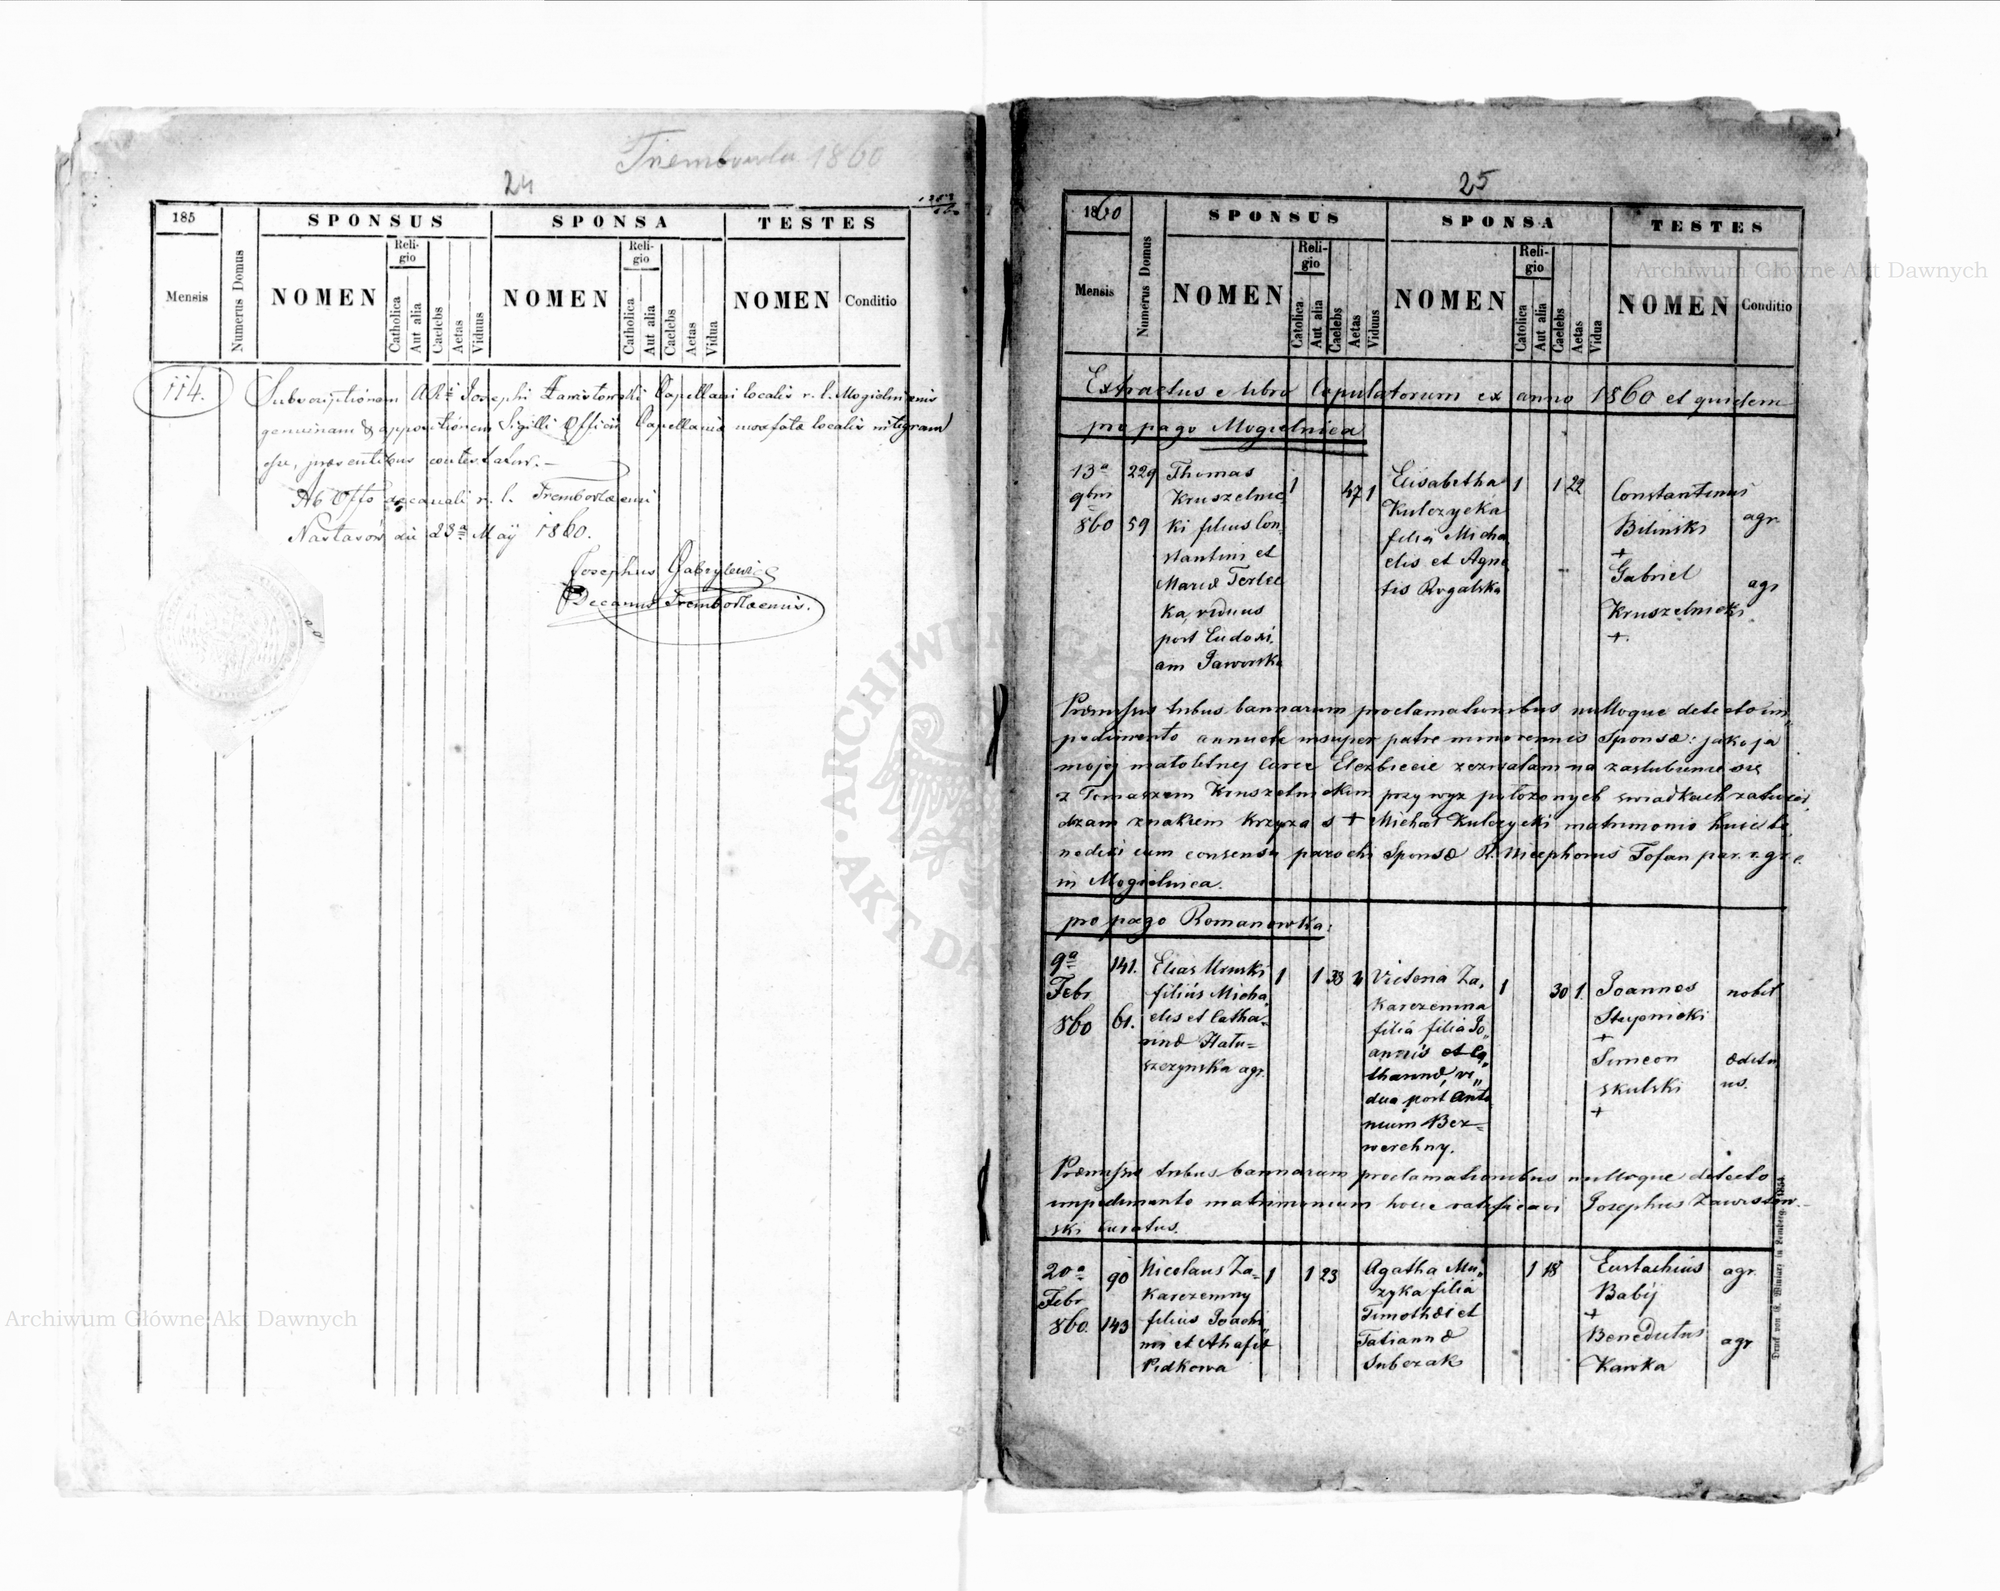 Trembowla 1860
24
185
Mensis
Numerus Domus
SPONSUS
NOMEN
Reli-
gio
Catholica
Aut alia
Caelebs
Aetas
Viduus
SPONSA
NOMEN
Reli-
gio
Catholica
Aut alia
Caelebs
Aetas
Vidua
TESTES
NOMEN
Conditio
114.
Subscriptionem Josephi Zawistowski Capellani localis r. l. Mogielnicensis
genuinam & appositionem Sigilli Officii Capellaniae localis integram
esse, praesentibus contestatur.—
Ab Offo decanali r. l. Trembowlaensi
Nastasów die 23a Maÿ 1860.
Josephus Gabrylewicz
Decanus Trembowlaensis.
25
1860
Mensis
Numerus Domus
SPONSUS
NOMEN
Reli-
gio
Catolica
Aut alia
Caelebs
Aetas
Viduus
SPONSA
NOMEN
Reli-
gio
Catolica
Aut alia
Caelebs
Aetas
Vidua
TESTES
NOMEN
Conditio
Extractus e libro Copulatorum ex anno 1860 et quidem
pro pago Mogielnica
13a
9bris
860
229
59
Thomas
Kruszelnic-
ki filius Con-
stantini et
Mariae Terlec
ka, viduus
post Eudoxi-
am Jaworska
1
47
1
Elisabetha
Kulczycka
filia Micha
elis et Agne
tis Rogalska
1
1
22
Constantinus
Bilinski
+
Gabriel
Kruszelnicki
+.
agr.
agr
Praemissis tribus bannarum proclamationibus nulloque detecto im
pedimento annuente insuper patre minorennis Sponsae: jako ja
mojej małoletnej Corce Elezbiecie zezwalam na zaslubienie się
z Tomaszem Kruszelnickim przy wyz położonych swiadkach zatwier
dzam znakiem krzyza s + Michał Kulczycki matrimonio huic be
nedixi cum consensu parochi Sponsae R. Nicephorus Tofan par. r. gr. c.
in Mogielnica.
pro pago Romanowka:
9a
Febr
860
141.
61.
Elias Uruski
filius Micha
elis et Catha-
rinae Hatu-
szczynska agr.
1
1
38
Victoria Za,
karczemna
filia filia Jo
annis et Ca
tharinae, vi
dua post Anto
nium Bez-
werchny.
1
30
1.
Joannes
Stupnicki
+
Simeon
Skulski
+
nobil
aeditu
us.
Praemissis tribus bannarum proclamationibus nulloque detecto
impedimento matrimonium hocce ratificavi Josephus Zawistow-
ski curatus.
20a
Febr
860.
90
143
Nicolaus Za-
karczemny
filius Joachi
mi et Ahafii
Pidkowa
1
1
23
Agatha Mu
zyka filia
Timothei et
Tatiannae
Subczak
1
18
Eustachius
Babij
+
Benedictus
Kawka
agr.
agr
Druck von E. Winiarz in Lemberg. 1854.
Archiwum Główne Akt Dawnych
Archiwum Główne Akt Dawnych
ARCHIWUM GŁÓ
AKT DAW